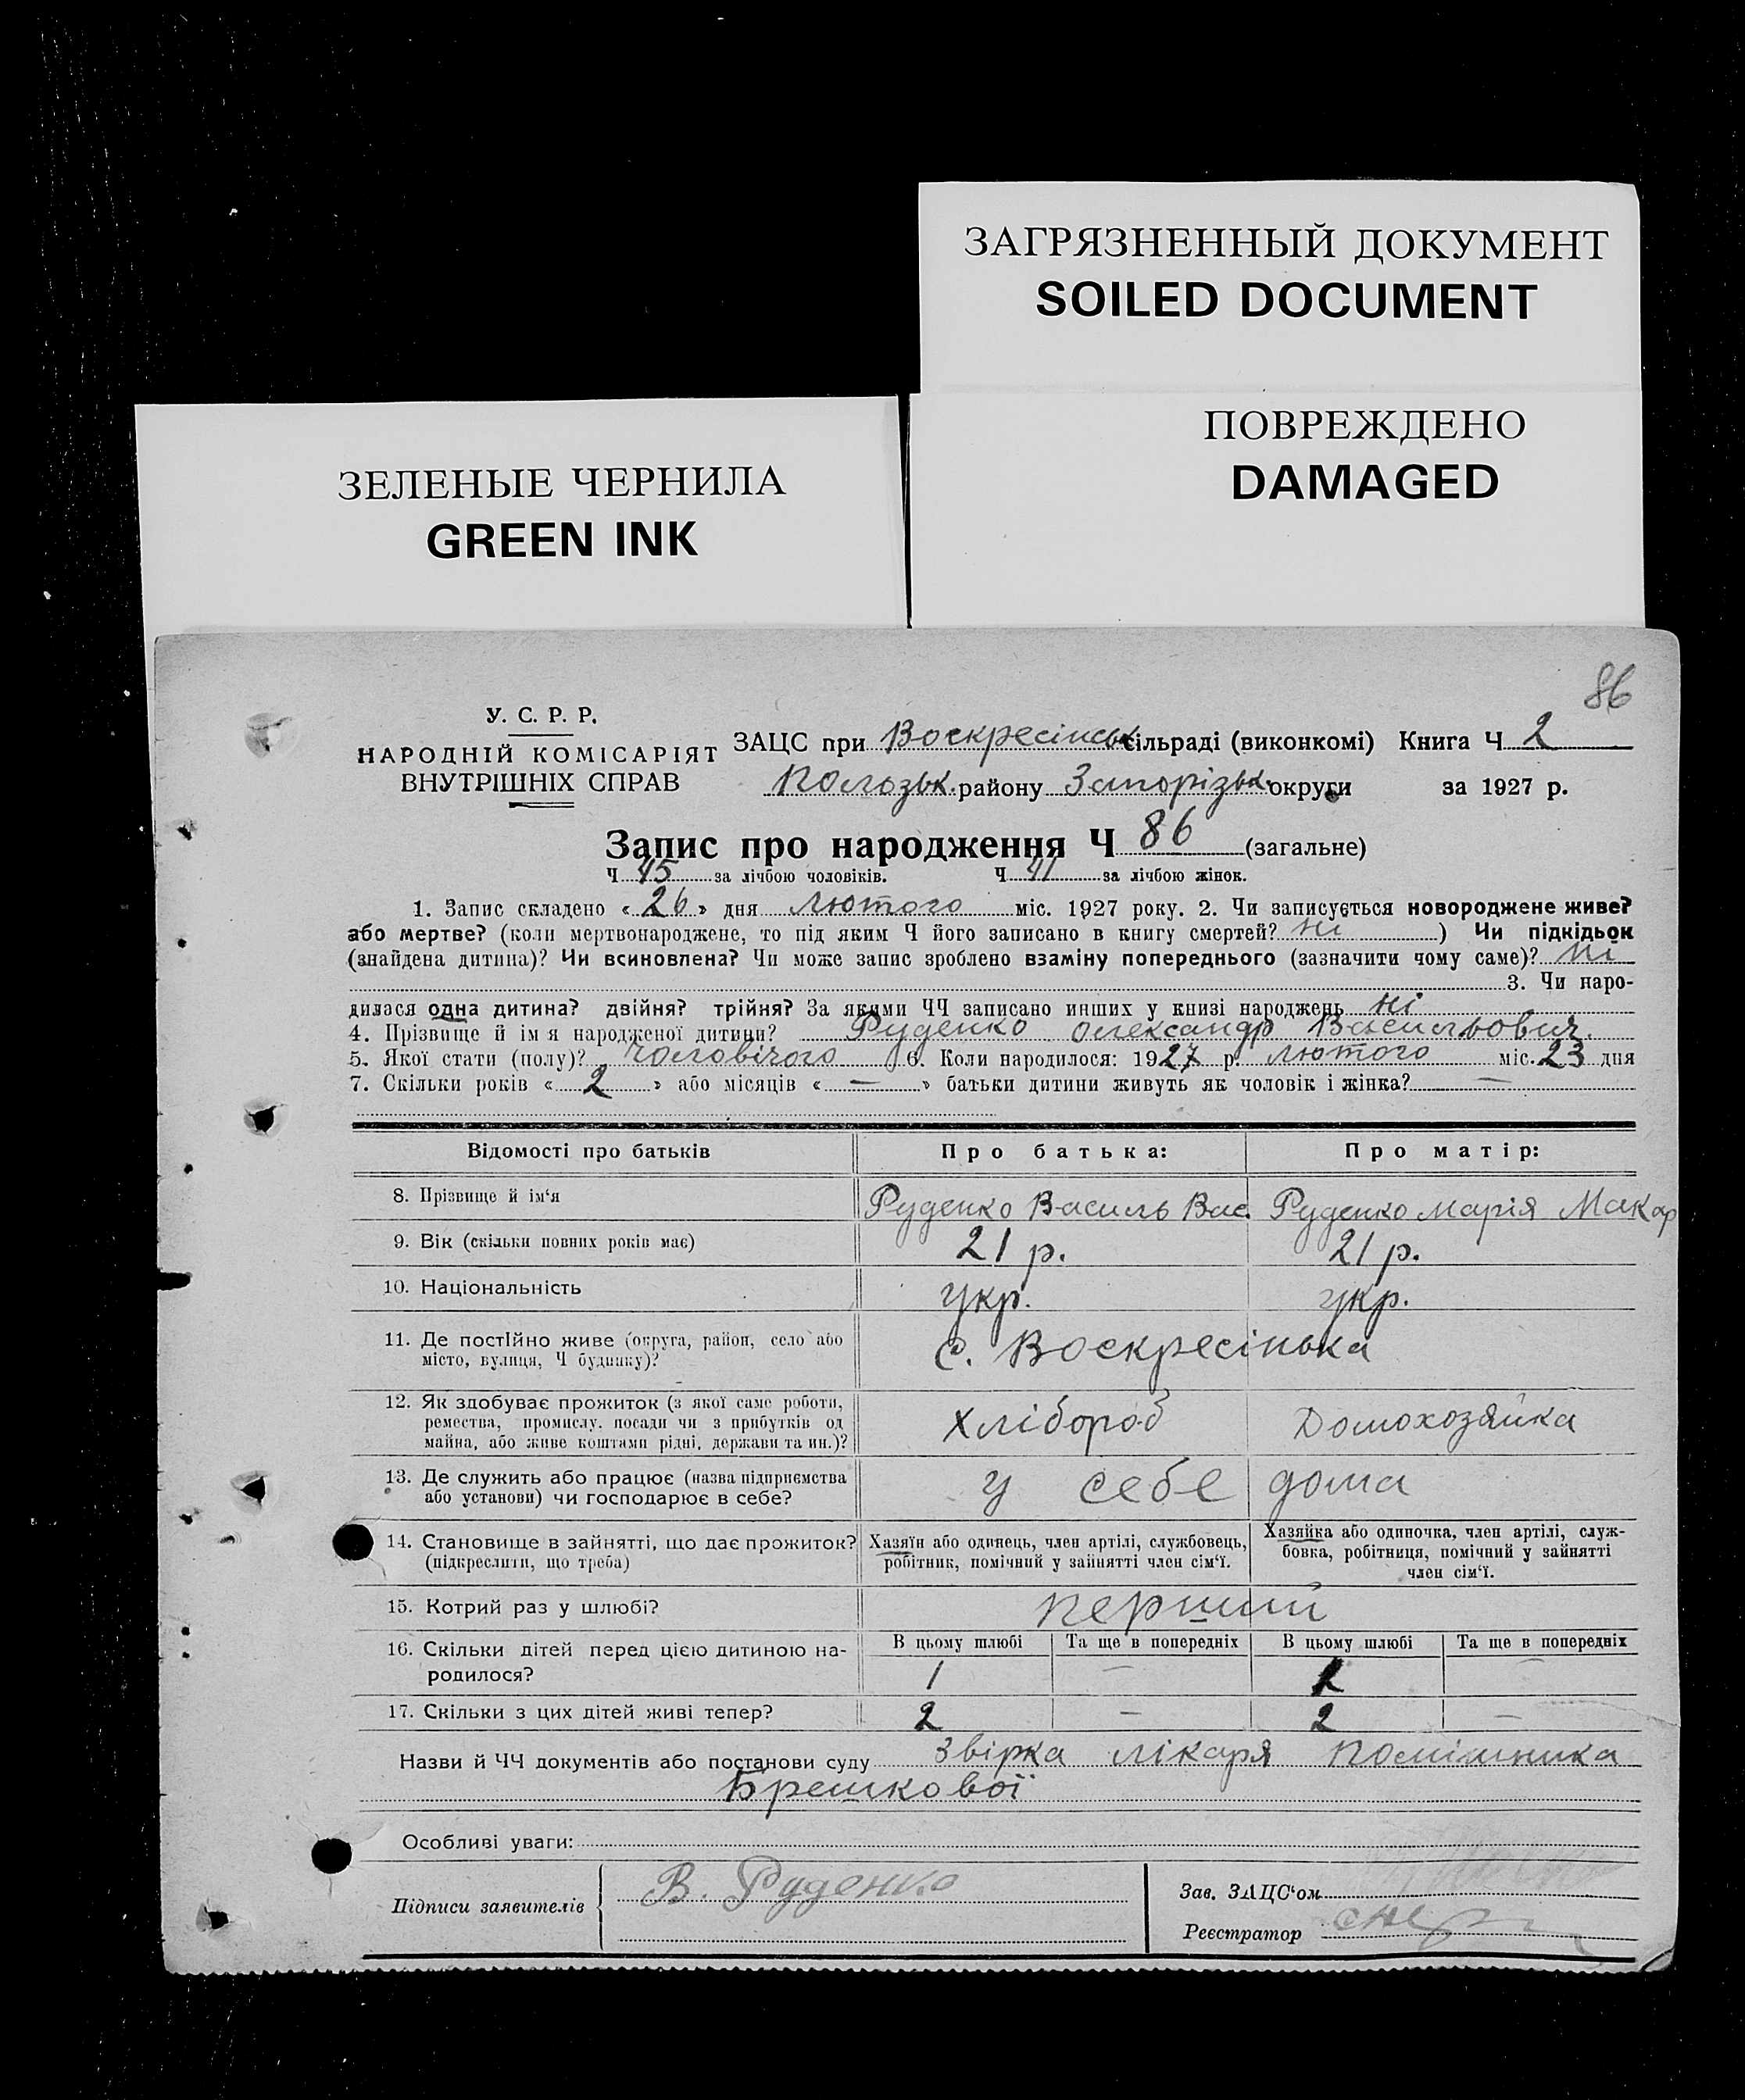 ЗАГРЯЗНЕННЫЙ ДОКУМЕНТ
SOILED DOCUMENT
ПОВРЕЖДЕНО
DAMAGED
ЗЕЛЕНЫЕ ЧЕРНИЛА
GREEN INK
86
У. С. Р. Р.
НАРОДНІЙ КОМІСАРІЯТ
ВНУТРІШНІХ СПРАВ
ЗАЦС при Воскресінськ сільраді (виконкомі) Книга Ч 2
Пологзьк. району Запорізьк. округи за 1927 р.
Запис про народження Ч 86 (загальне)
Ч 45 за лічбою чоловіків. Ч 41 за лічбою жінок.
1. Запис складено « 26 » дня лютого міс. 1927 року. 2. Чи записується новороджене живе?
або мертве? (коли мертвонароджене, то під яким Ч його записано в книгу смертей? ні ) Чи підкідьок
(знайдена дитина)? Чи всиновлена? Чи може запис зроблено взаміну попереднього (зазначити чому саме)? ні
3. Чи наро-
дилася одна дитина? двійня? трійня? За якими ЧЧ записано инших у книзі народжень ні
4. Прізвище й ім я народженої дитини? Руденко Олександр Васильович.
5. Якої стати (полу)? чоловічого 6. Коли народилося: 1927 р. лютого міс. 23 дня
7. Скільки років « 2 » або місяців « — » батьки дитини живуть як чоловік і жінка? —
Відомості про батьків Про батька: Про матір:
8. Прізвище й ім‘я Руденко Василь Вас. Руденко Марія Макар
9. Вік (скільки повних років має) 21 р. 21 р.
10. Національність укр. укр.
11. Де постійно живе (округа, район, село або
місто, вулиця, Ч будинку)? с. Воскресінька
12. Як здобуває прожиток (з якої саме роботи,
ремества, промислу. посади чи з прибутків од
майна, або живе коштами рідні, держави та ин.)? Хлібороб Домохозяйка
13. Де служить або працює (назва підприємства
або установи) чи господарює в себе? у себе дома
14. Становище в зайнятті, що дає прожиток?
(підкреслити, що треба)
Хазяїн або одинець, член артілі, службовець,
робітник, помічний у зайнятті член сім‘ї.
Хазяйка або одиночка, член артілі, служ-
бовка, робітниця, помічний у зайнятті
член сім‘ї.
15. Котрий раз у шлюбі? перший
16. Скільки дітей перед цією дитиною на-
родилося?
В цьому шлюбі Та ще в попередніх В цьому шлюбі Та ще в попередніх
1 — 1 —
17. Скільки з цих дітей живі тепер? 2 — 2 —
Назви й ЧЧ документів або постанови суду звірка лікаря помішника
Брешкової
Особливі уваги:
Підписи заявителів В. Руденко
Зав. ЗАЦС‘ом
Реєстратор